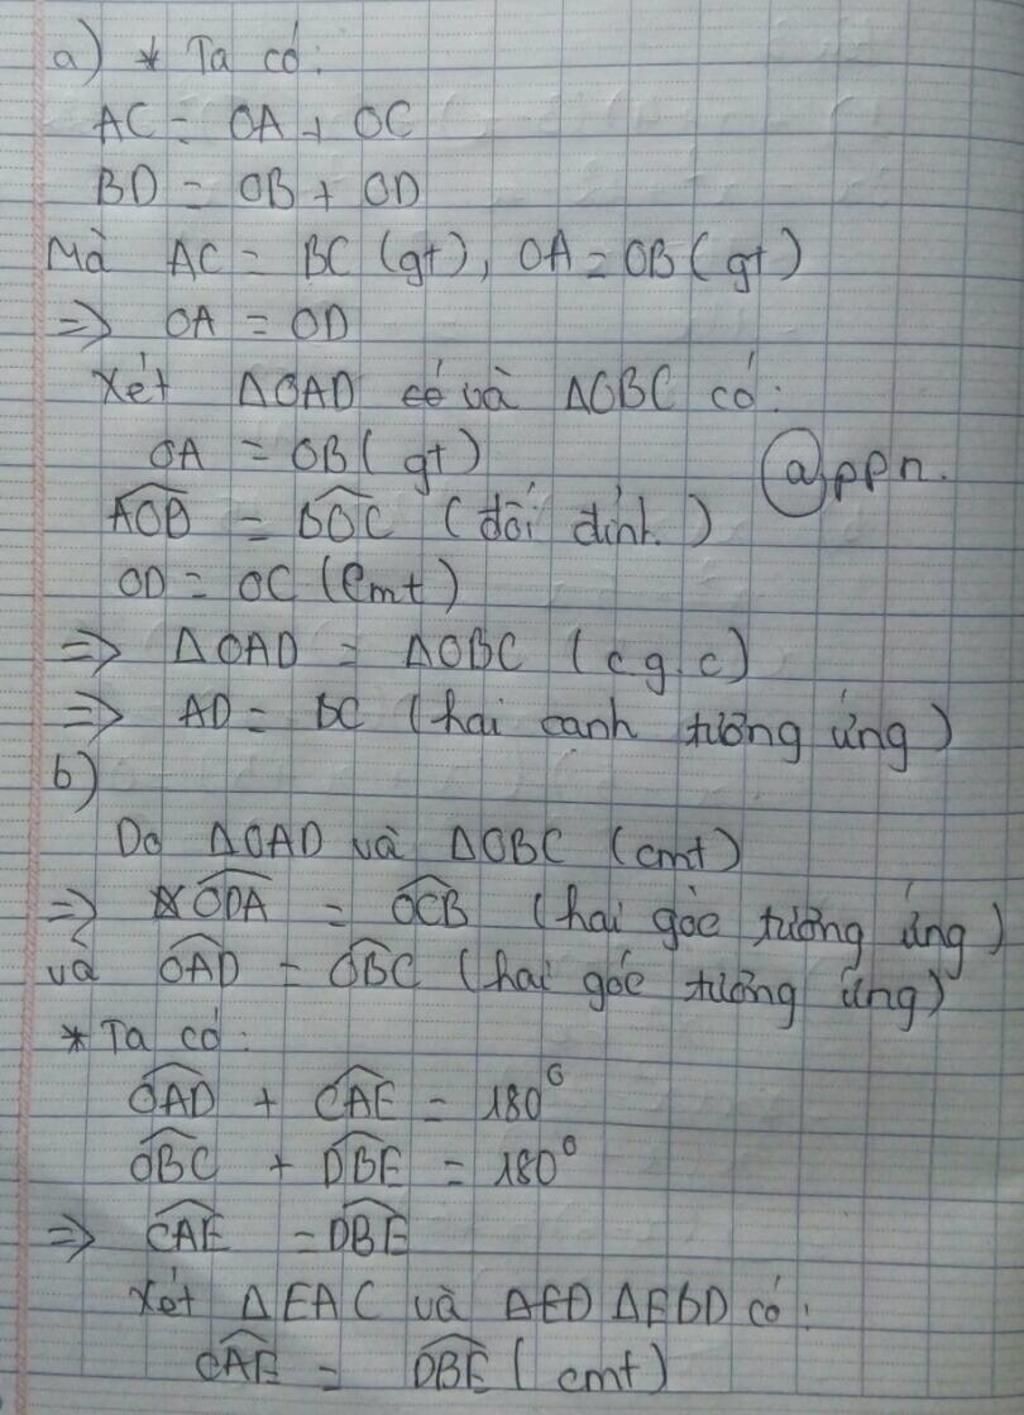 a) * Ta có:
AC = OA + OC
BD = OB + OD
Mà AC = BC (gt), OA = OB (gt)
=> OA = OD
Xét ΔOAD có và ΔOBC có:
OA = OB (gt)
@ppn.
AOD = BOC (đối đỉnh)
OD = OC (cmt)
=> ΔOAD = ΔOBC (c.g.c)
=> AD = BC (hai cạnh tương ứng)
b)
Do ΔOAD và ΔOBC (cmt)
=> ODA = OCB (hai góc tương ứng)
và OAD = OBC (hai góc tương ứng)
* Ta có:
OAD + CAE = 180°
OBC + DBE = 180°
=> CAE = DBE
Xét ΔEAC và ΔED ΔEBD có:
CAE = DBE (cmt)